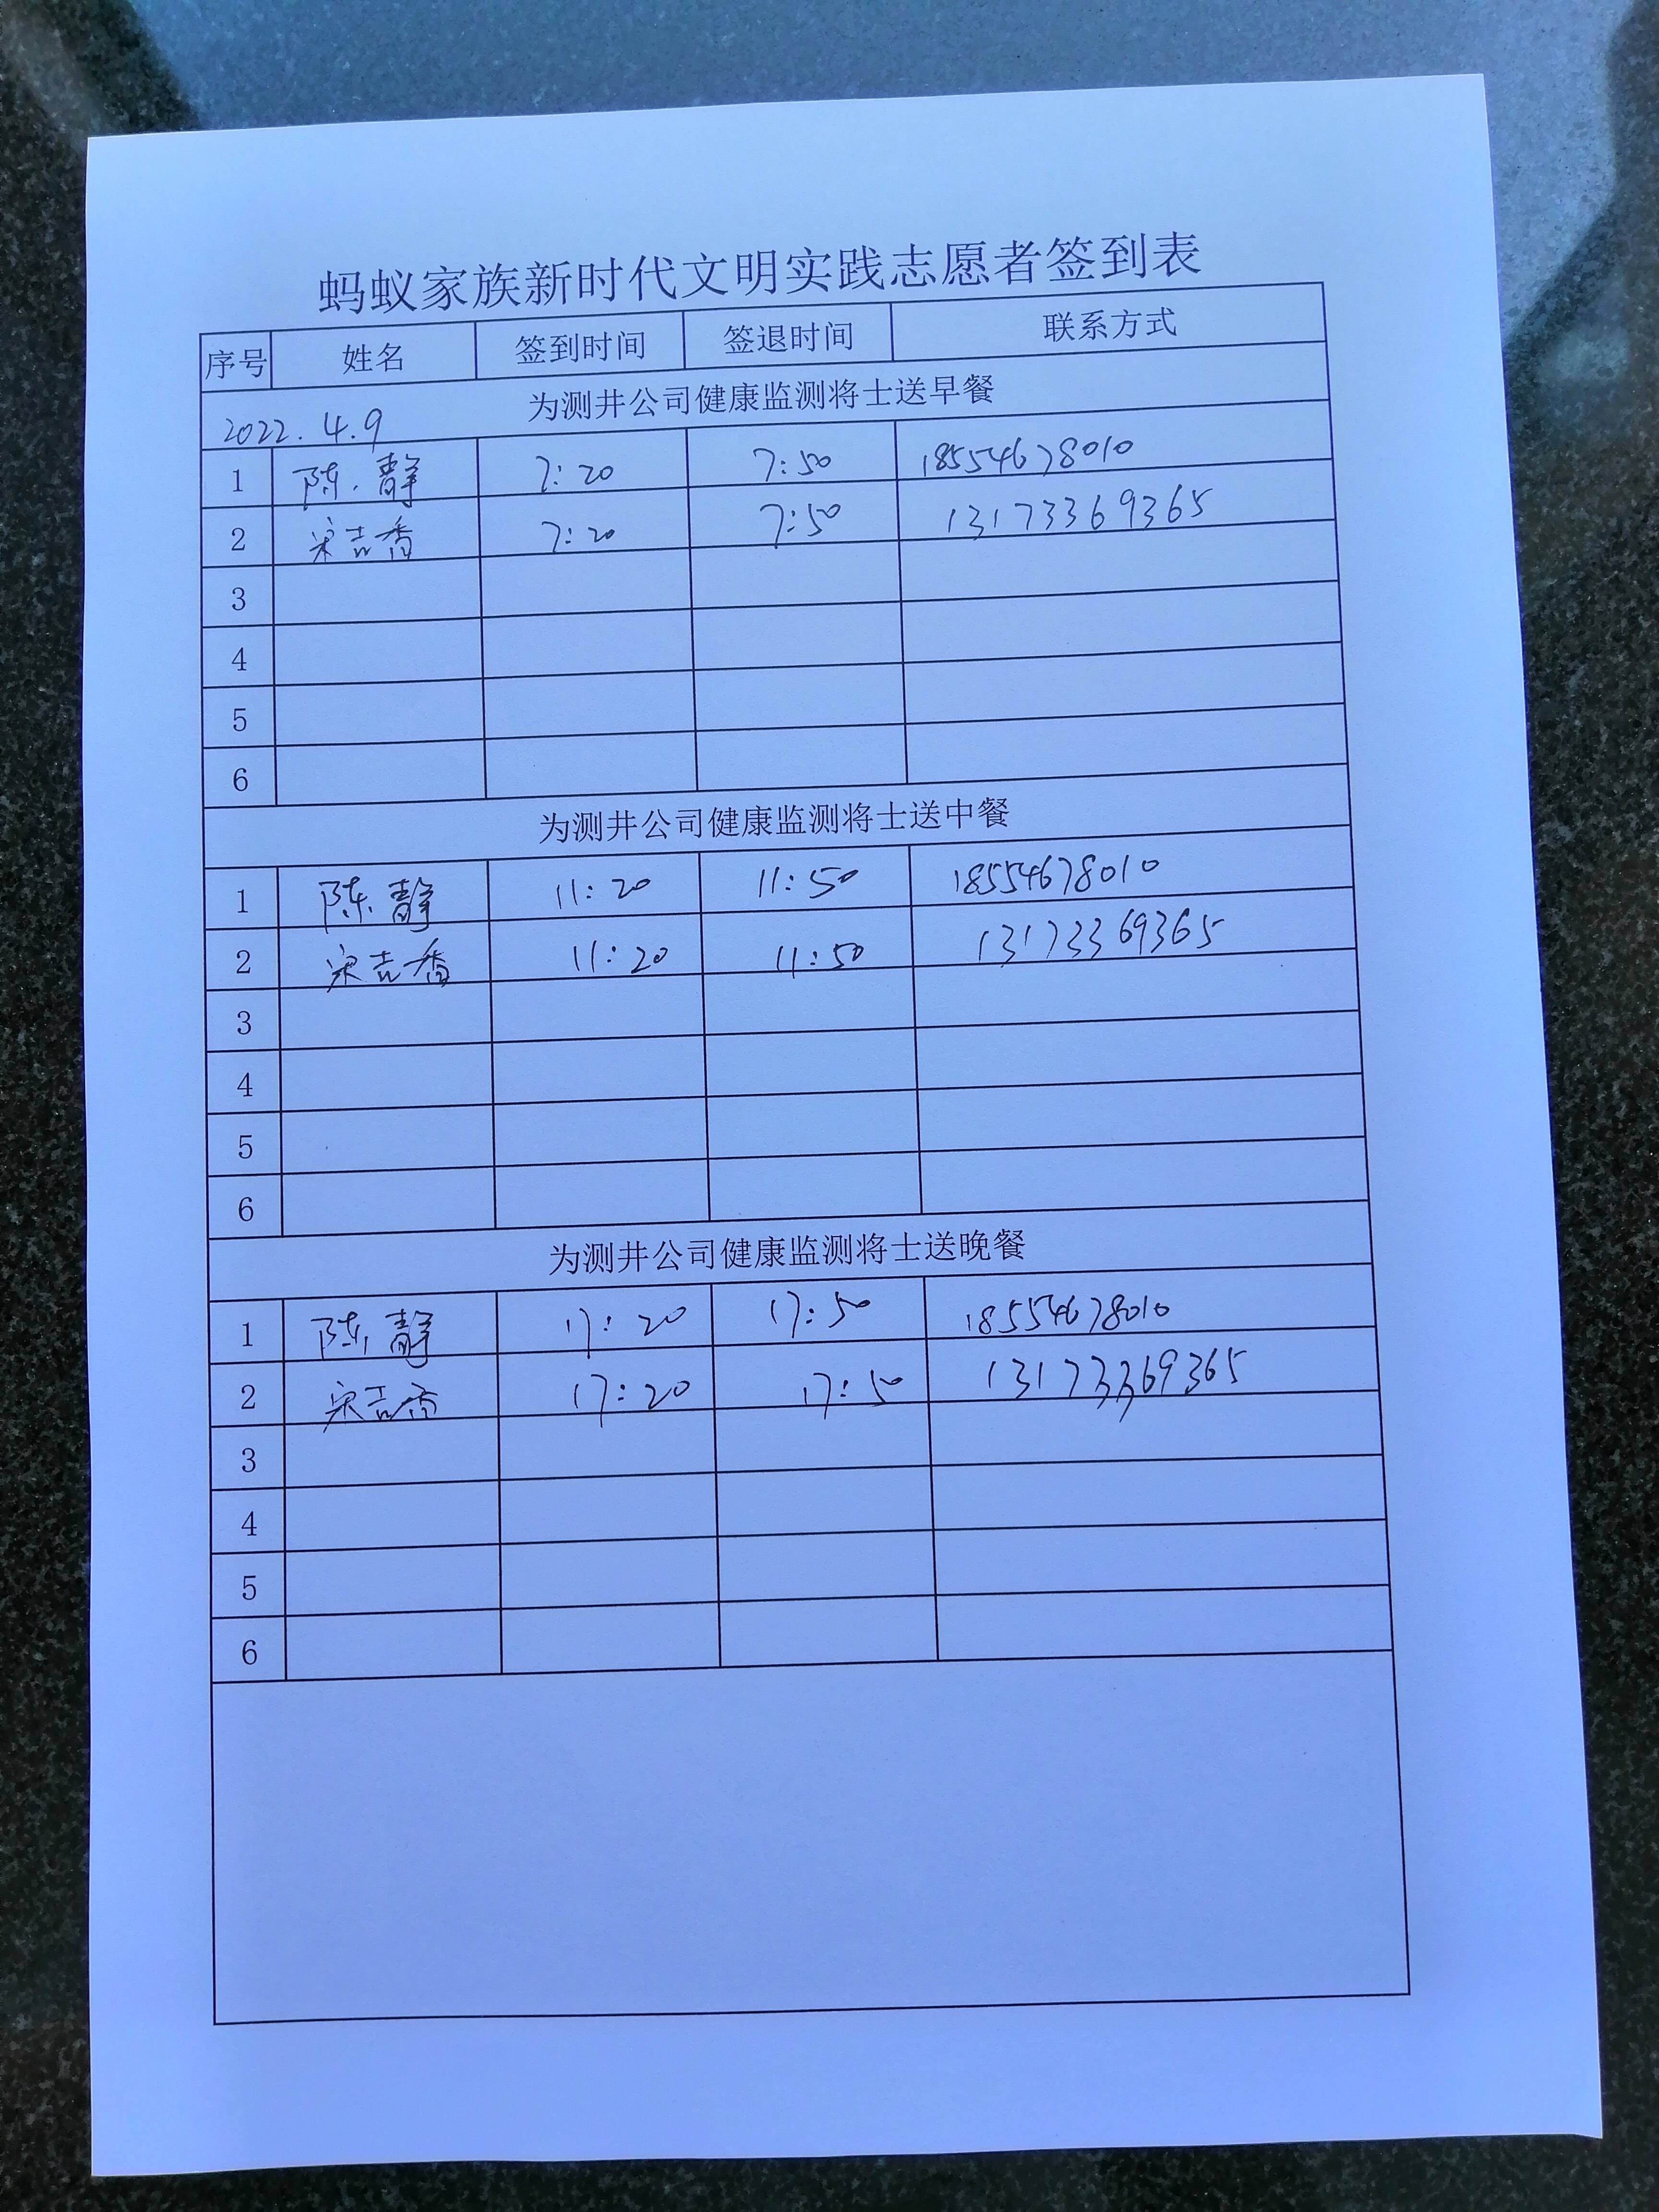 蚂蚁家族新时代文明实践志愿者签到表
序号 姓名 签到时间 签退时间 联系方式
为测井公司健康监测将士送早餐
2022.4.9
1 陈静 7:20 7:50 18554678010
2 宋吉香 7:20 7:50 13173369365
3
4
5
6
为测井公司健康监测将士送中餐
1 陈静 11:20 11:50 18554678010
2 宋吉香 11:20 11:50 13173369365
3
4
5
6
为测井公司健康监测将士送晚餐
1 陈静 17:20 17:50 18554678010
2 宋吉香 17:20 17:50 13173369365
3
4
5
6